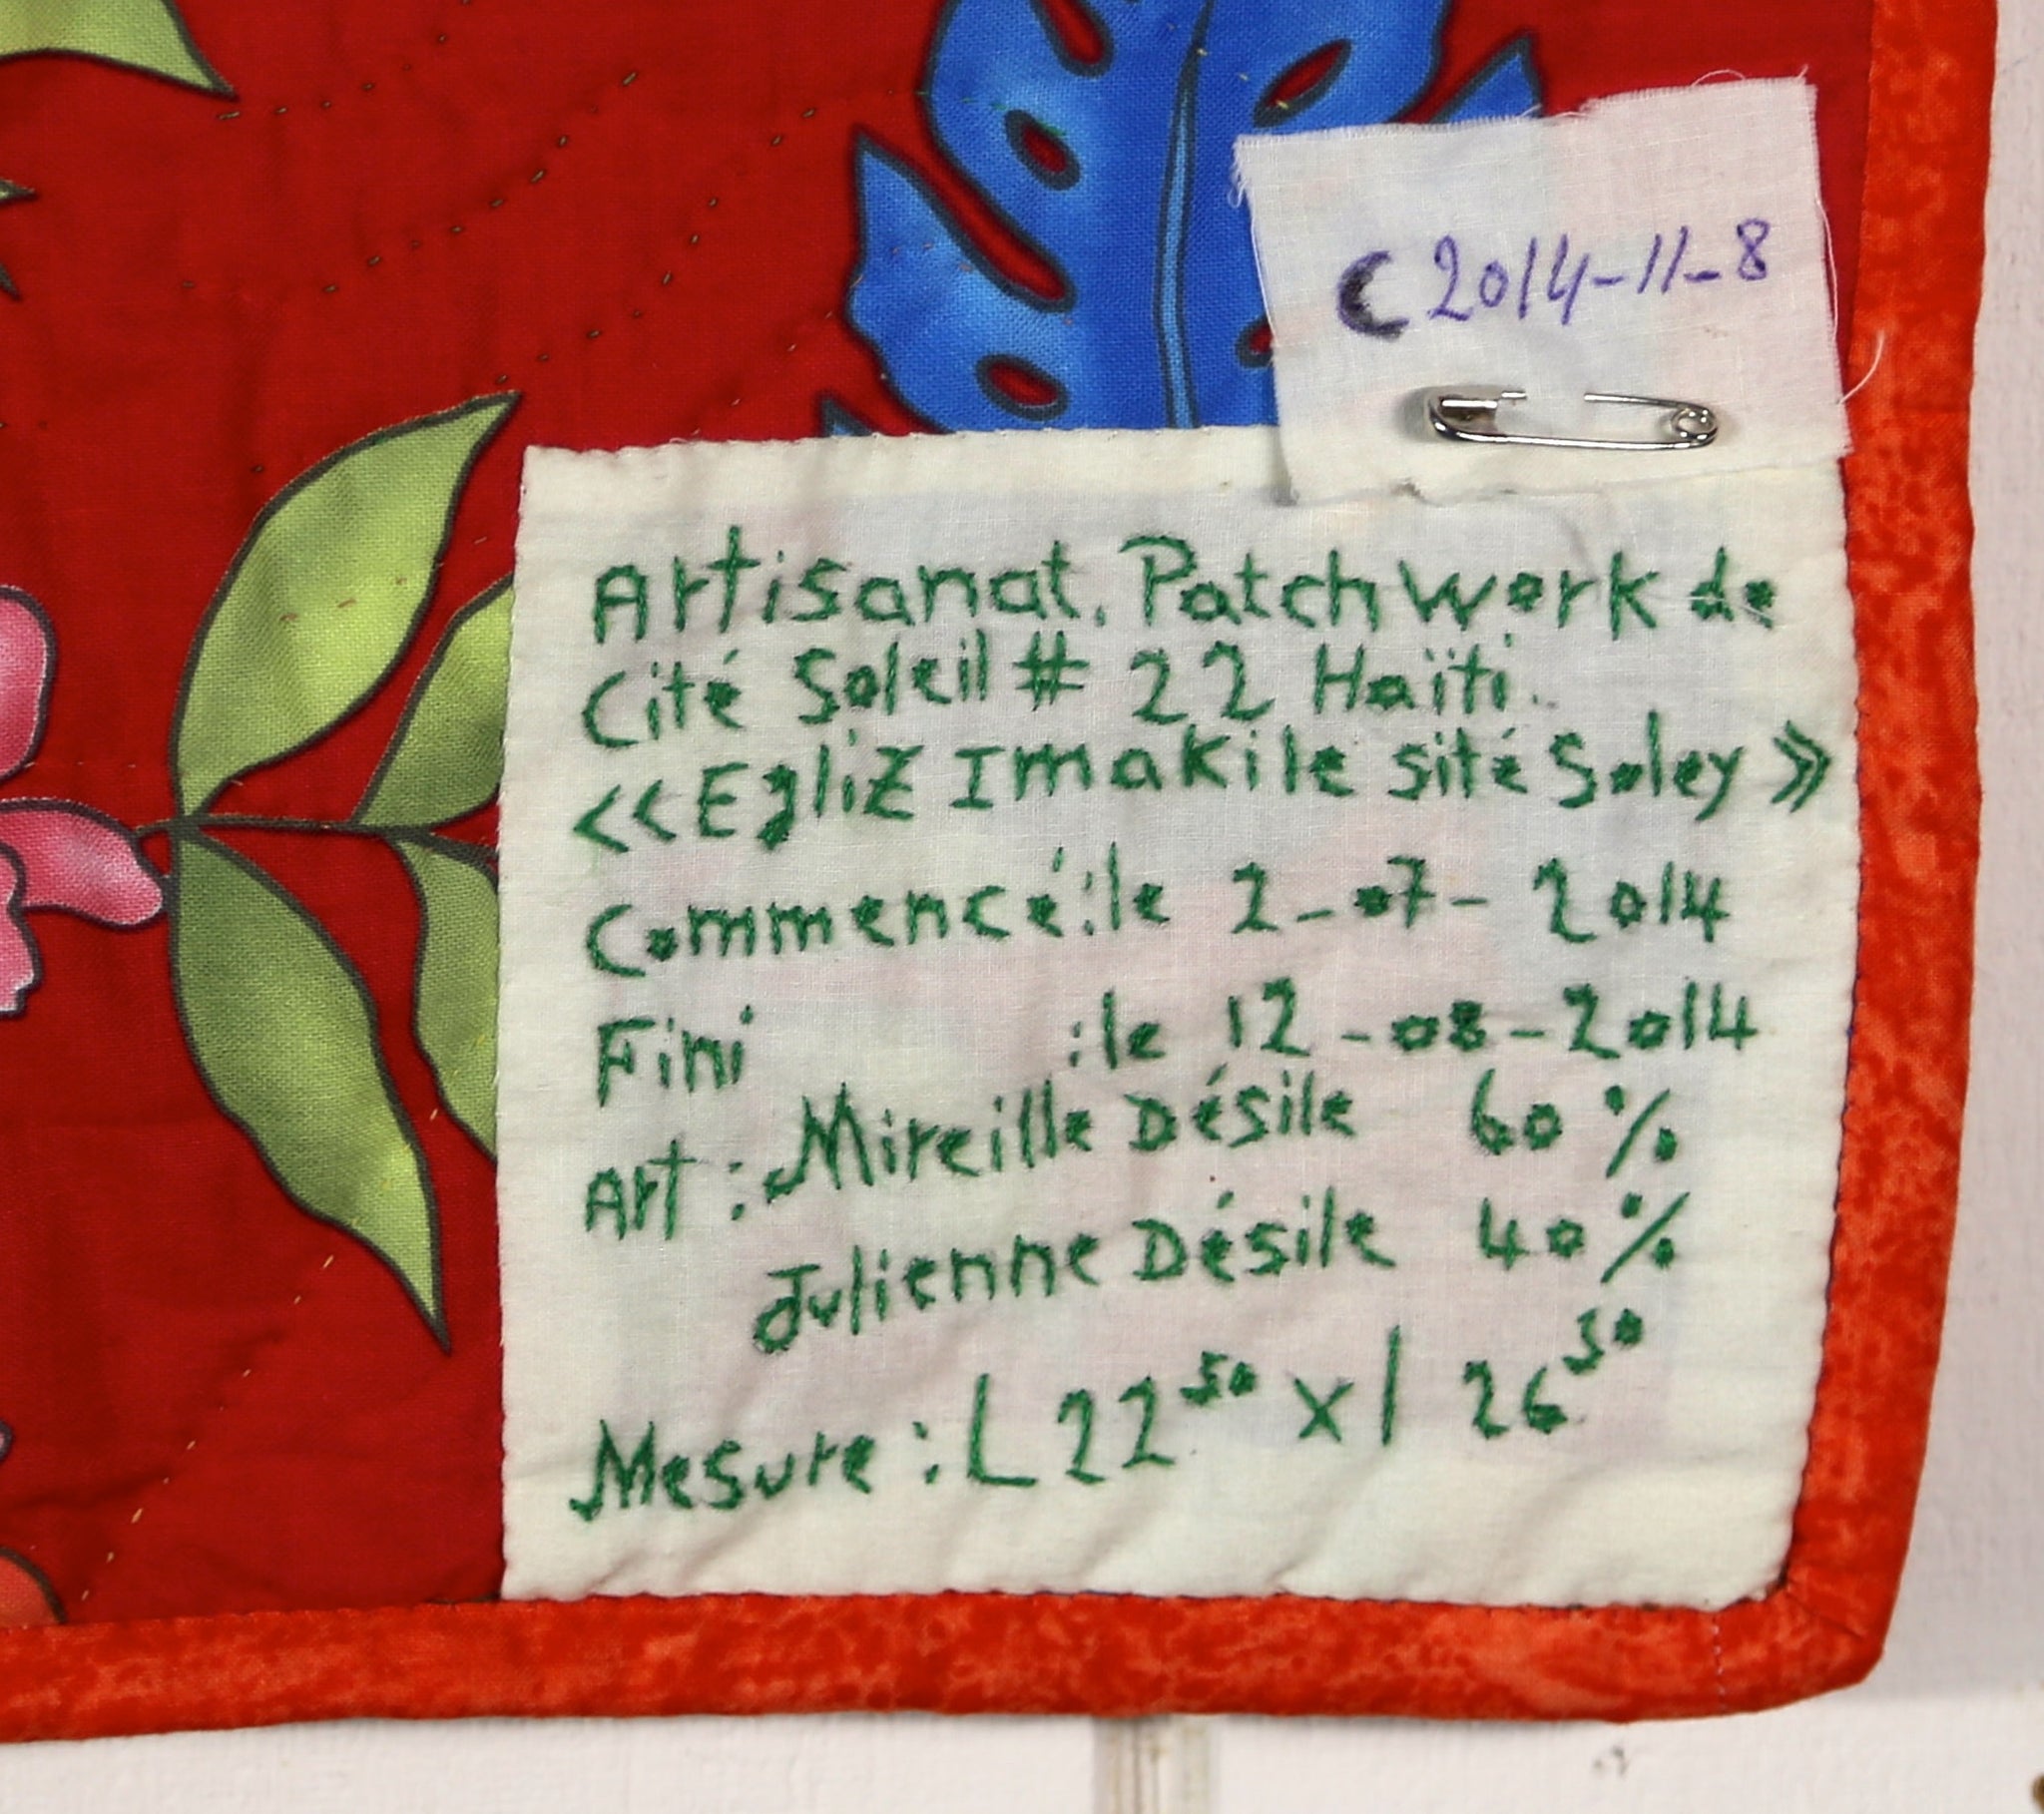 C2014-11-8
Artisanat. Patch work de
Cité Soleil # 22 Haïti.
<<Egliz Imakile sité Soley >>
Commencé:le 2-07-2014
Fini :le 12-08-2014
Art: Mireille Désile 60%
Julienne Désile 40%
Mesure: L 22⁵⁰ x l 26⁵⁰